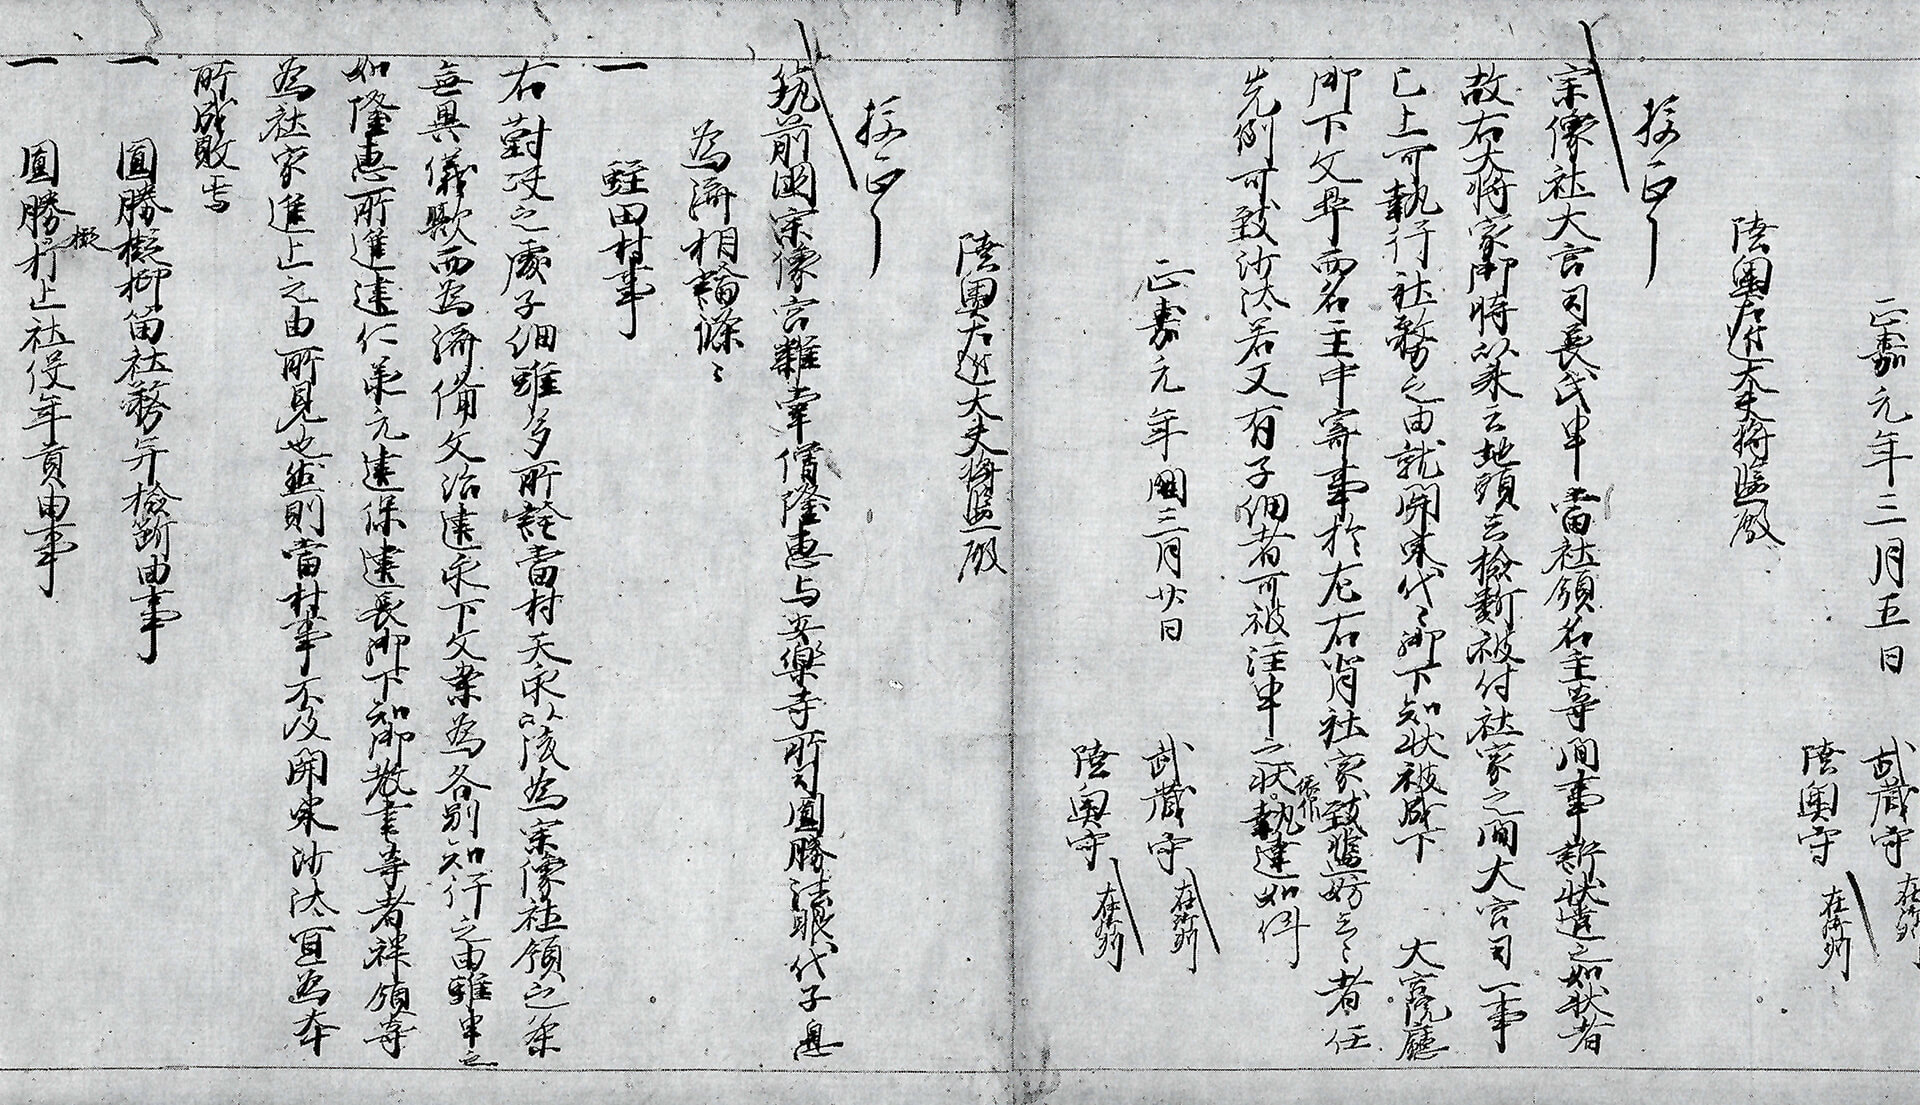 正嘉元年三月五日
武蔵守 在御判
陸奥守 在御判
陸奥左近大夫将監殿
校正了
宗像社大宮司長氏申當社領名主等間事訴状遣之如状者
故右大将家御時以来云地頭云検断被付社家之間大宮司一事
已上可執行社務之由就開東代々御下知状被成下 大宮院廳
御下文畢而名主中寄事於左右背社家致濫妨云々者任
先例可致沙汰若又有子細者可被注申之状依仰執達如件
正嘉元年閏三月廿日
武蔵守 在御判
陸奥守 在御判
陸奥左近大夫将監殿
校正了
筑前國宗像宮雑掌僧隆恵与安楽寺所司圓勝法眼代子息
為濟相論條々
一 蛭田村事
右對决之處子細雖多所詮當村天永以後為宗像社領之条
無異儀歟而為濟備文治建永下文案為各別知行之由雖申之
如隆恵所進建仁承元建保建長御下知御教書等者禅領等
為社家進止之由所見也然則當村事不及開東沙汰宜為本
所成敗焉
一 圓勝擬押留社務并検断由事
一 圓勝擬抑止社役年貢由事